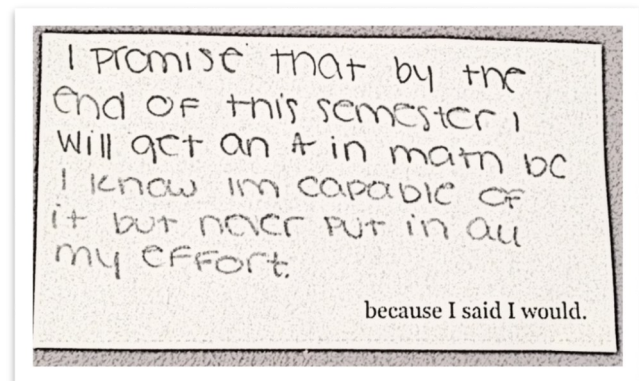 I promise that by the
end of this semester I
will get an A in math bc
I know im capable of
it but never put in all
my effort.
because I said I would.